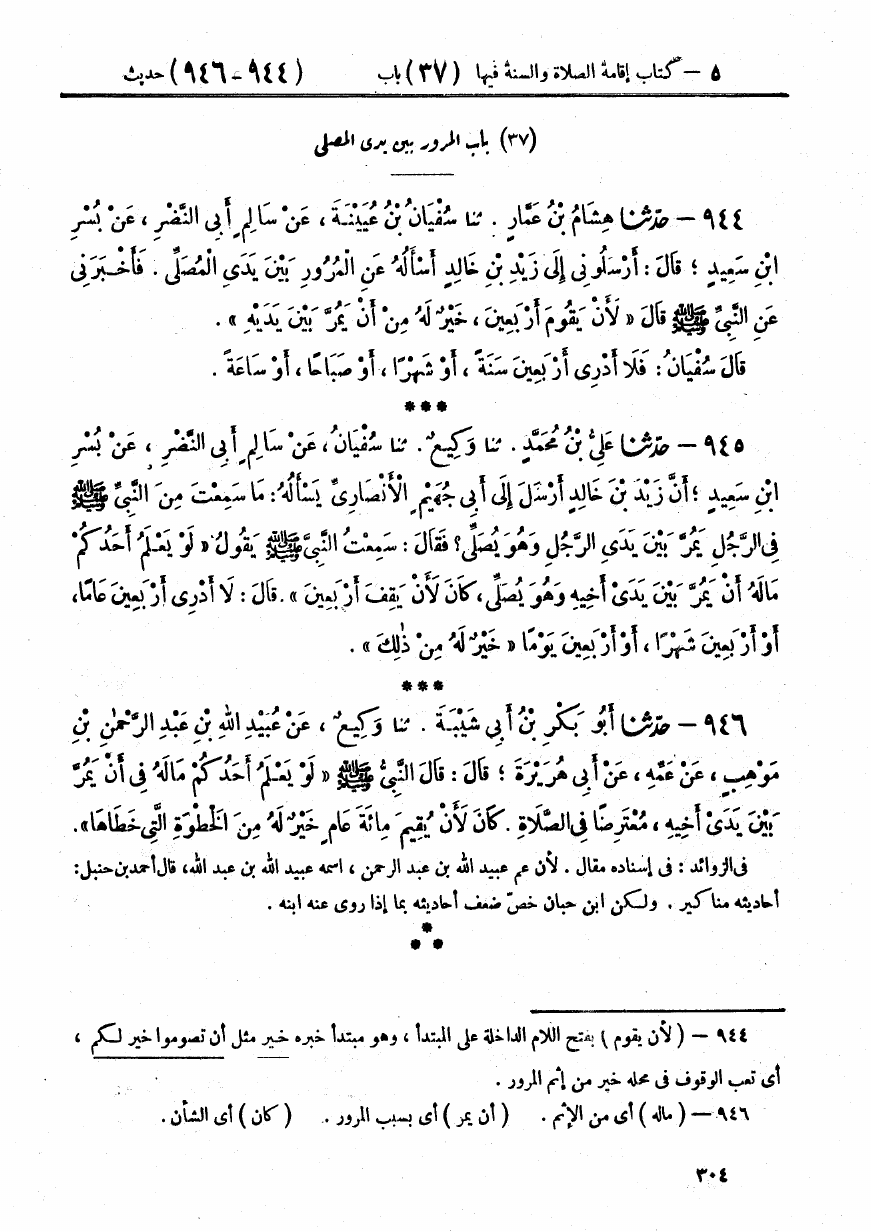 ٥ – كتاب إقامة الصلاة والسنة فيها (٣٧) باب (٩٤٤ – ٩٤٦) حديث
(٣٧) باب المرور بين يدى المصلى
٩٤٤ – حَدَّثَنَا هِشَامُ بْنُ عَمَّارٍ . ثنا سُفْيَانُ بْنُ عُيَيْنَةَ ، عَنْ سَالِمٍ أَبِى النَّضْرِ ، عَنْ بُسْرِ
ابْنِ سَعِيدٍ ؛ قَالَ : أَرْسَلُونِى إِلَى زَيْدِ بْنِ خَالِدٍ أَسْأَلُهُ عَنِ الْمُرُورِ بَيْنَ يَدَىِ الْمُصَلِّى . فَأَخْبَرَنِى
عَنِ النَّبِىِّ ﷺ قَالَ « لَأَنْ يَقُومَ أَرْبَعِينَ ، خَيْرٌ لَهُ مِنْ أَنْ يَمُرَّ بَيْنَ يَدَيْهِ » .
قَالَ سُفْيَانُ : فَلَا أَدْرِى أَرْبَعِينَ سَنَةً ، أَوْ شَهْرًا ، أَوْ صَبَاحًا ، أَوْ سَاعَةً .
***
٩٤٥ – حَدَّثَنَا عَلِىُّ بْنُ مُحَمَّدٍ . ثنا وَكِيعٌ . ثنا سُفْيَانُ ، عَنْ سَالِمٍ أَبِى النَّضْرِ ، عَنْ بُسْرِ
ابْنِ سَعِيدٍ ؛ أَنَّ زَيْدَ بْنَ خَالِدٍ أَرْسَلَ إِلَى أَبِى جُهَيْمٍ الْأَنْصَارِىِّ يَسْأَلُهُ : مَا سَمِعْتَ مِنَ النَّبِىِّ ﷺ
فِى الرَّجُلِ يَمُرُّ بَيْنَ يَدَىِ الرَّجُلِ وَهُوَ يُصَلِّى ؟ فَقَالَ : سَمِعْتُ النَّبِىَّ ﷺ يَقُولُ « لَوْ يَعْلَمُ أَحَدُكُمْ
مَالَهُ أَنْ يَمُرَّ بَيْنَ يَدَىْ أَخِيهِ وَهُوَ يُصَلِّى ، كَانَ لَأَنْ يَقِفَ أَرْبَعِينَ » . قَالَ : لَا أَدْرِى أَرْبَعِينَ عَامًا ،
أَوْ أَرْبَعِينَ شَهْرًا ، أَوْ أَرْبَعِينَ يَوْمًا « خَيْرٌ لَهُ مِنْ ذٰلِكَ » .
***
٩٤٦ – حَدَّثَنَا أَبُو بَكْرِ بْنُ أَبِى شَيْبَةَ . ثنا وَكِيعٌ ، عَنْ عُبَيْدِ اللهِ بْنِ عَبْدِ الرَّحْمٰنِ بْنِ
مَوْهِبٍ ، عَنْ عَمِّهِ ، عَنْ أَبِى هُرَيْرَةَ ؛ قَالَ : قَالَ النَّبِىُّ ﷺ « لَوْ يَعْلَمُ أَحَدُكُمْ مَالَهُ فِى أَنْ يَمُرَّ
بَيْنَ يَدَىْ أَخِيهِ ، مُعْتَرِضًا فِى الصَّلَاةِ . كَانَ لَأَنْ يُقِيمَ مِائَةَ عَامٍ خَيْرٌ لَهُ مِنَ الْخَطْوَةِ الَّتِى خَطَاهَا » .
فى الزوائد : فى إسناده مقال . لأن عم عبيد الله بن عبد الرحمن ، اسمه عبيد الله بن عبد الله، قال أحمد بن حنبل :
أحاديثه مناكير . ولكن ابن حبان خصّ ضعف أحاديثه بما إذا روى عنه ابنه .
***
٩٤٤ – ( لأن يقوم ) بفتح اللام الداخلة على المبتدأ ، وهو مبتدأ خبره خير مثل أن تصوموا خير لكم ،
أى تعب الوقوف فى محله خير من إثم المرور .
٩٤٦ – ( ماله ) أى من الإثم . ( أن يمر ) أى بسبب المرور . ( كان ) أى الشأن .
٣٠٤